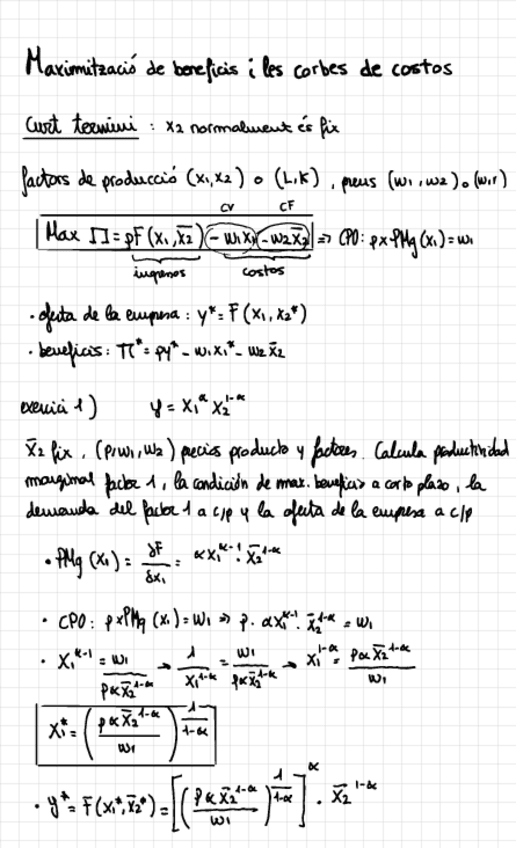 Maximització de beneficis i les corbes de costos
Curt termini : x₂ normalment és fix
factors de producció (x₁,x₂) o (L,K) , preus (w₁,w₂) o (w,r)
CV CF
Max Π = pF(x₁,x̄₂) - w₁x₁ - w₂x̄₂ ⇒ CPO: p×PMg(x₁)=w₁
ingresos costos
· oferta de la empresa : y* = F(x₁,x₂*)
· beneficis: Π* = py* - w₁x₁* - w₂x̄₂
exercici 1) y = x₁^α x₂^(1-α)
x̄₂ fix , (p,w₁,w₂) precios producto y factores. Calcula productividad
marginal factor 1, la condición de max. beneficio a corto plazo, la
demanda del factor 1 a c/p y la oferta de la empresa a c/p
· PMg (x₁) = δF/δx₁ = αx₁^(α-1) · x̄₂^(1-α)
· CPO: p×PMg(x₁)=w₁ ⇒ p · αx₁^(α-1) · x̄₂^(1-α) = w₁
· x₁^(α-1) = w₁/(pαx̄₂^(1-α)) → 1/x₁^(1-α) = w₁/(pαx̄₂^(1-α)) → x₁^(1-α) = pαx̄₂^(1-α)/w₁
x₁* = (pαx̄₂^(1-α)/w₁)^(1/(1-α))
· y* = F(x₁*,x̄₂*) = [(pαx̄₂^(1-α)/w₁)^(1/(1-α))]^α · x̄₂^(1-α)